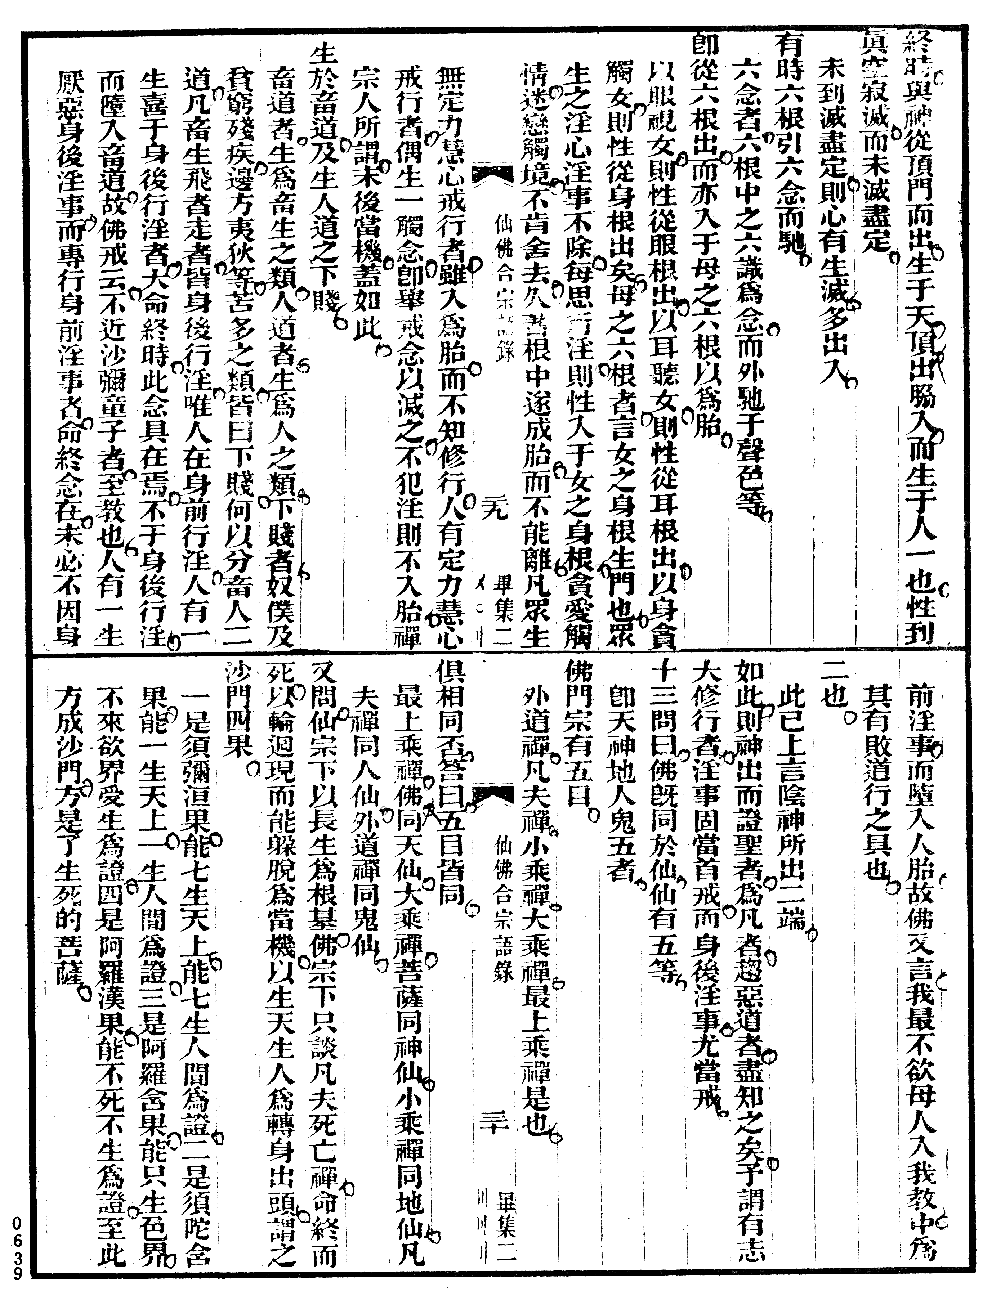 終時與神從頂門而出生于天頂出腸入而生于人一也性到
眞空寂滅而未滅盡定
未到滅盡定則心有生滅多出入
有時六根引六念而馳
六念者六根中之六識爲念而外馳于聲色等
卽從六根出而亦入于母之六根以爲胎
以眼視女則性從眼根出以耳聽女則性從耳根出以身貪
觸女則性從身根出矣母之六根者言女之身根生門也眾
生之淫心淫事不除每思行淫則性入于女之身根貪愛觸
情迷戀觸境不肯舍去久習根中遂成胎而不能離凡眾生
仙佛合宗語錄
元
畢集二
無定力慧心戒行者雖入爲胎而不知修行人有定力慧心
戒行者偶生一觸念卽舉戒念以滅之不犯淫則不入胎禪
宗人所謂末後當機蓋如此
生於畜道及生人道之下賤
畜道者生爲畜生之類人道者生爲人之類下賤者奴僕及
貧窮殘疾邊方夷狄等苦多之類皆曰下賤何以分畜人二
道凡畜生飛者走者皆身後行淫唯人在身前行淫人有一
生喜于身後行淫者大命終時此念具在焉不于身後行淫
而墮入畜道故佛戒云不近沙彌童子者至教也人有一生
厭惡身後淫事而專行身前淫事者命終念在未必不因身
前淫事而墮入人胎故佛又言我最不欲母人入我教中爲
其有敗道行之具也
二也
此已上言陰神所出二端
如此則神出而證聖者爲凡者趨惡道者盡知之矣予謂有志
大修行者淫事固當首戒而身後淫事尤當戒
十三問曰佛旣同於仙仙有五等
卽天神地人鬼五者
佛門宗有五曰
外道禪凡夫禪小乘禪大乘禪最上乘禪是也
仙佛合宗語錄
三十
畢集二
俱相同否答曰五目皆同
最上乘禪佛同天仙大乘禪菩薩同神仙小乘禪同地仙凡
夫禪同人仙外道禪同鬼仙
又問仙宗下以長生爲根基佛宗下只談凡夫死亡禪命終而
死以輪迴現而能躲脫爲當機以生天生人爲轉身出頭謂之
沙門四果
一是須彌洹果能七生天上能七生人間爲證二是須陀含
果能一生天上一生人間爲證三是阿羅含果能只生色界
不來欲界受生爲證四是阿羅漢果能不死不生爲證至此
方成沙門方是了生死的菩薩
0639